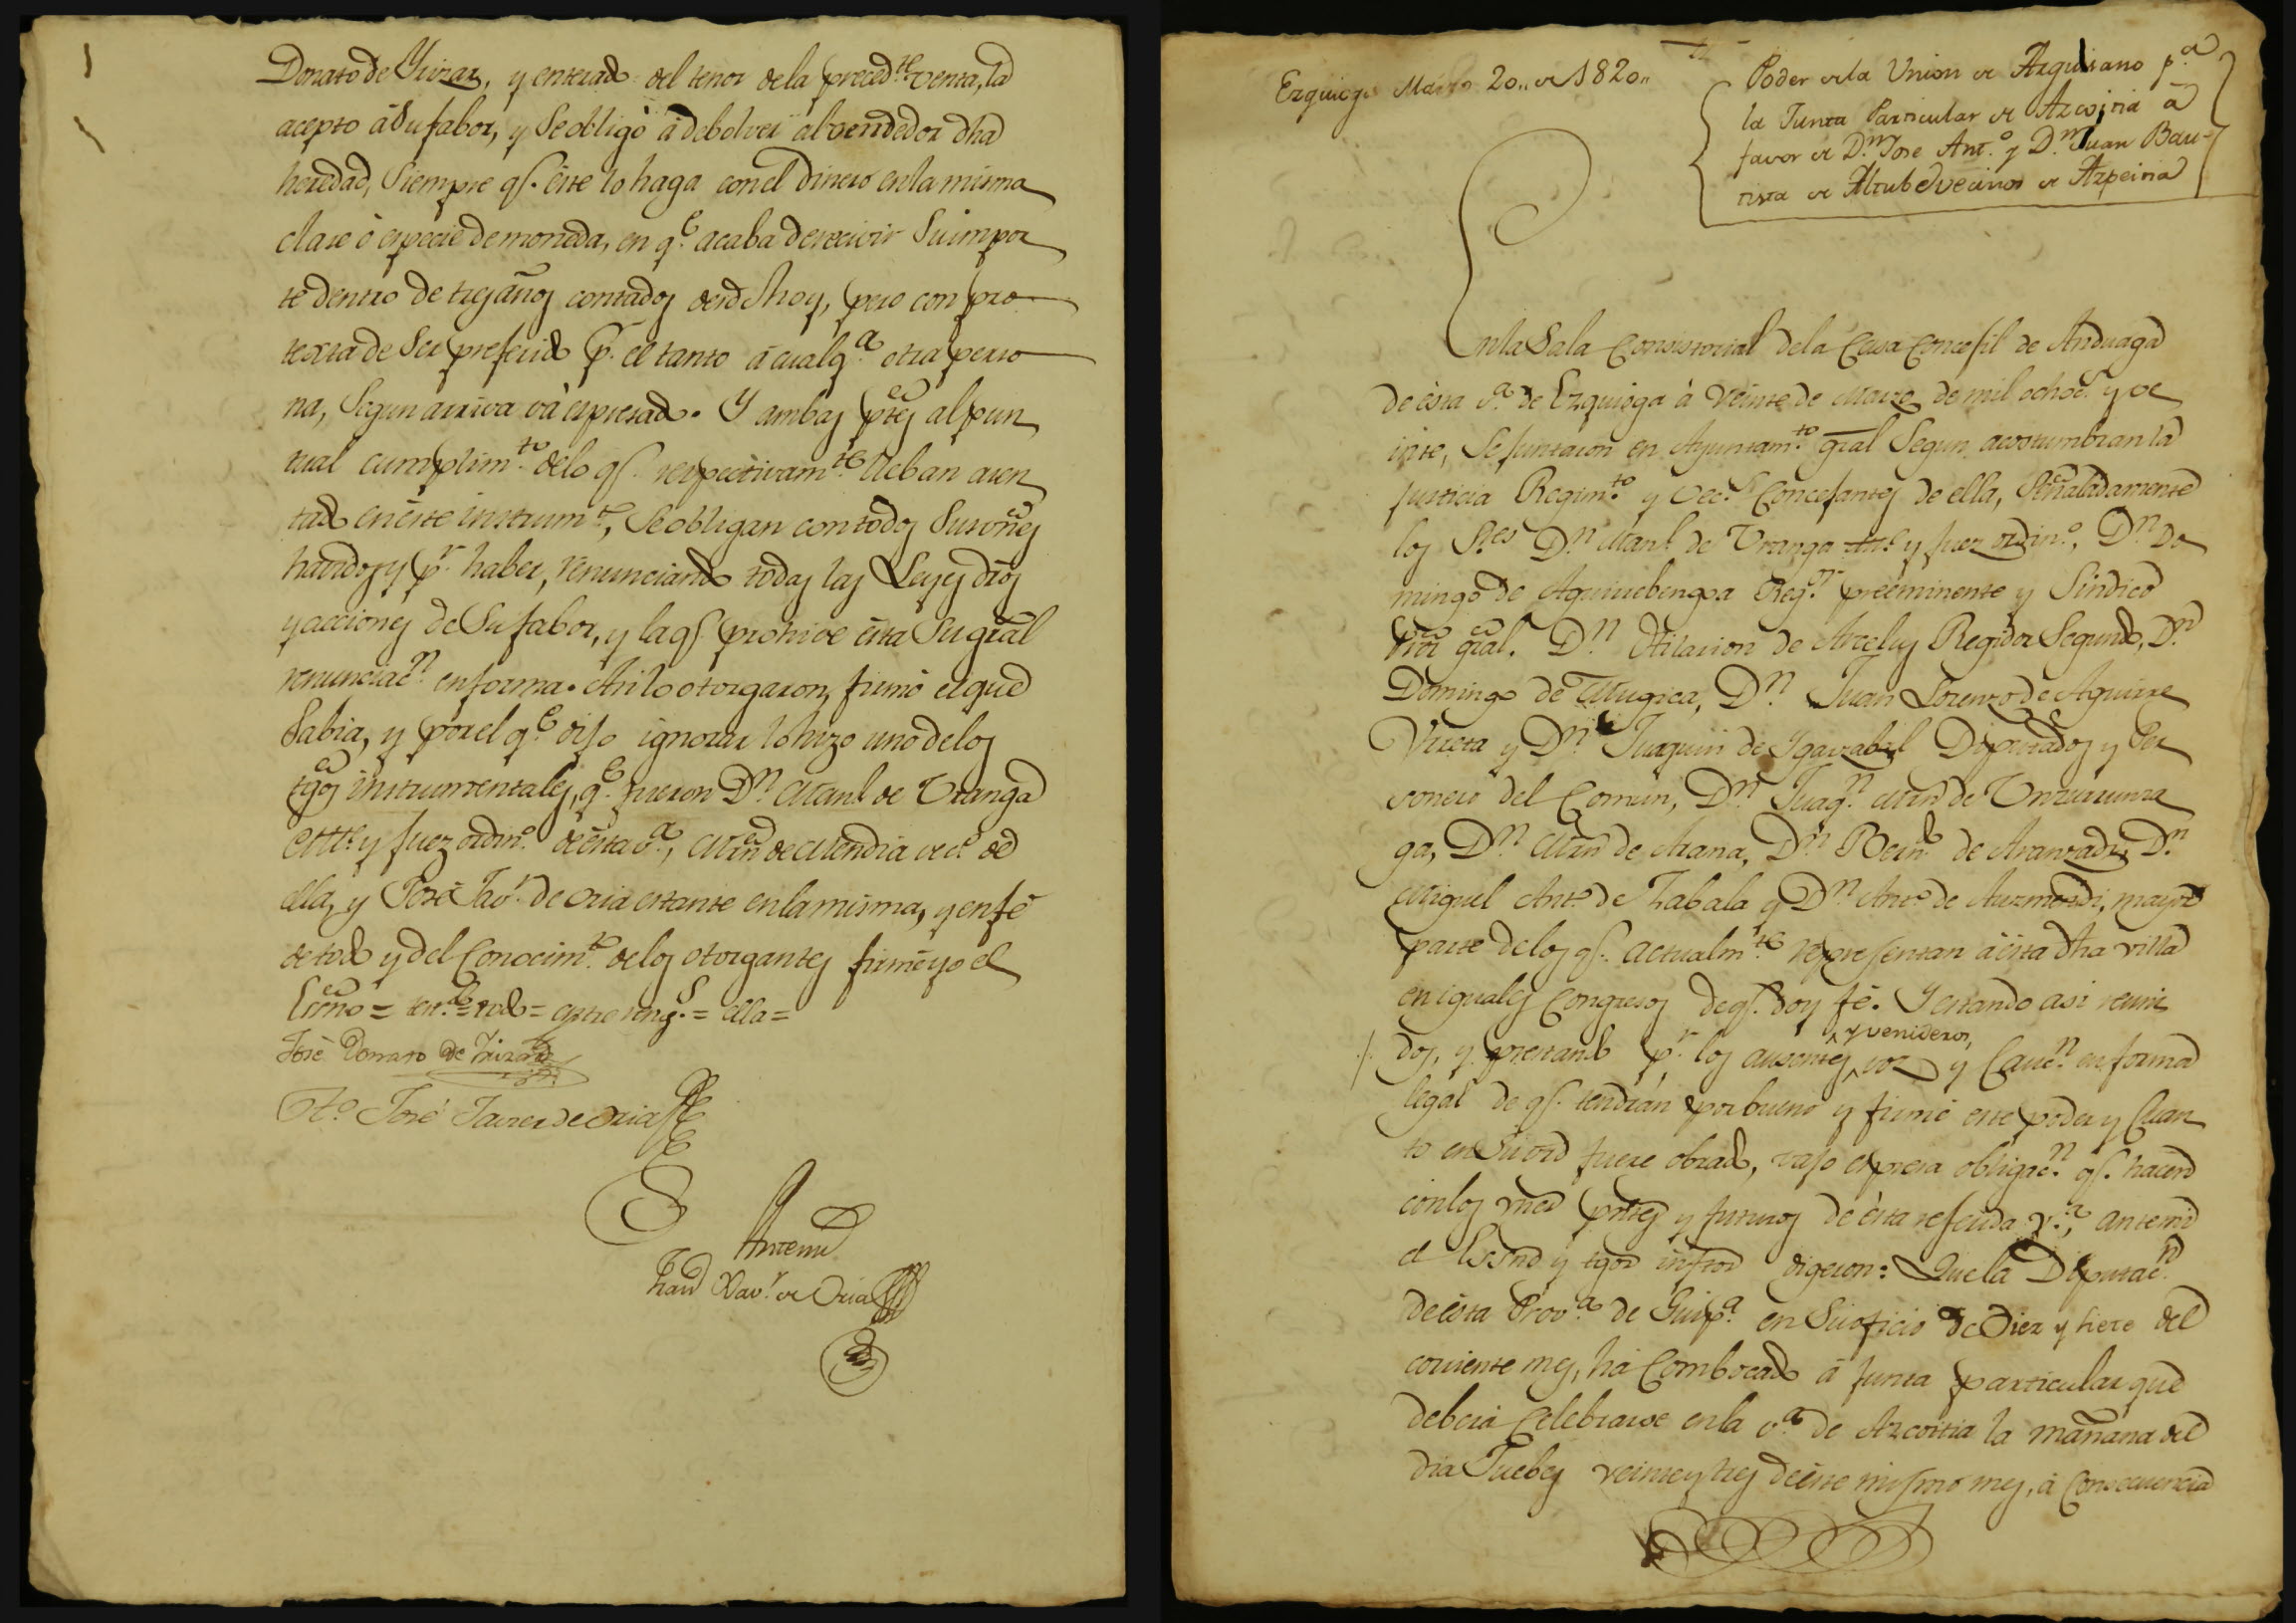 Donato de Yrizar, y enterado del tenor dela preced.te venta, la
acepto â Su fabor, y Se obligó â debolver al vendedor dha
heredad, Siempre q.e êste lo haga con el Dinero en la misma
clase ô especie de moneda, en q.e acaba de recivir Su impor
te dentro de tres años contados desde hoy, pero con pro
texta de Ser preferido p.r el tanto â cualq.a otra perso
na, Segun arriva và expresado. Y ambas ptes al pun
tual cumplim.to delo q.e respectivam.te lleban asen
tado en êste instrum.to, Se obligan con todos Sus vnes
havidos y p.r haber, renunciando todas las Leyes dros
y acciones de Su fabor, y la q.e prohive êsta Su gral
renunciac.n en forma. Asi lo otorgaron, firmó el que
Sabia, y por el q.e dijo ignorar lo hizo uno de los
tgos instrumentales, q.e fueron D.n Man.l de Vranga
Alc.e y Juez ordin.o de êsta v.a, Mrñ de Mendia vec.o de
ella, y José Jav.r de Oria estante en la misma, y en fé
de todo y del Conocim.to de los otorgantes firmé yo el
Escño = ten.do = todo = entre reng.s = ella =
José Donato de Yrizar
T.o José Javier de Oria
Antemi
Fran.co Xav.r de Oria
Ezquioga Marzo 20,, de 1820,,
Poder de la Union de Arguisano p.a
la Junta Particular de Azcoitia â
favor de D.n Jose Ant.o y D.n Juan Bau-
tista de Altube vecinos de Azpeitia
En la Sala Consistorial dela Casa Concejil de Anduaga
de êsta v.a de Ezquioga â Veinte de Marzo de mil ochoc.s y ve
inte, Se juntaron en Ayuntam.to gral Segun acostumbran la
Justicia Regim.to y Vec.s Concejantes de ella, Señaladamente
los S.res D.n Man.l de Vranga Alc.e y Juez ordin.o, D.n Do
mingo de Aguirrebengoa Reg.r preeminente y Sindico
Pror gral. D.n Hilarion de Arcelus Regidor Segundo, D.n
Domingo de Mugica, D.n Juan Lorenzo de Aguirre
Vrreta y D.n Juaquin de Ygarzabal Diputados y Per
sonero del Comun, D.n Juaq.n Mrñ de Vnzurrunza
ga, D.n Mrñ de Arana, D.n Bern.do de Aranzadi, D.n
Miguel Ant.o de Zabala y D.n Ant.o de Auzmendi, mayor
parte de los q.e actualm.te representan â êsta dha villa
en iguales Congresos de q.e doy fé. Y estando asi reuni
dos, y prestando p.r los ausentes y venideros, voz y Cauc.n en forma
legal de q.e tendrán por bueno y firme este poder y Cuan
to en Su ord fuere obrado, vajo expresa obligac.n q.e hacen
con los vnes pntes y futuros de êsta referida v.a, ante mi
el Essno y tgos infros digeron: Que la Diputac.n
de êsta Prov.a de Guip.a en Su oficio de Diez y siete del
corriente mes, há Combocado â Junta particular que
deberá Celebrarse en la v.a de Azcoitia la mañana del
dia Juebes veinte y tres de êste mismo mes, â Consecuencia